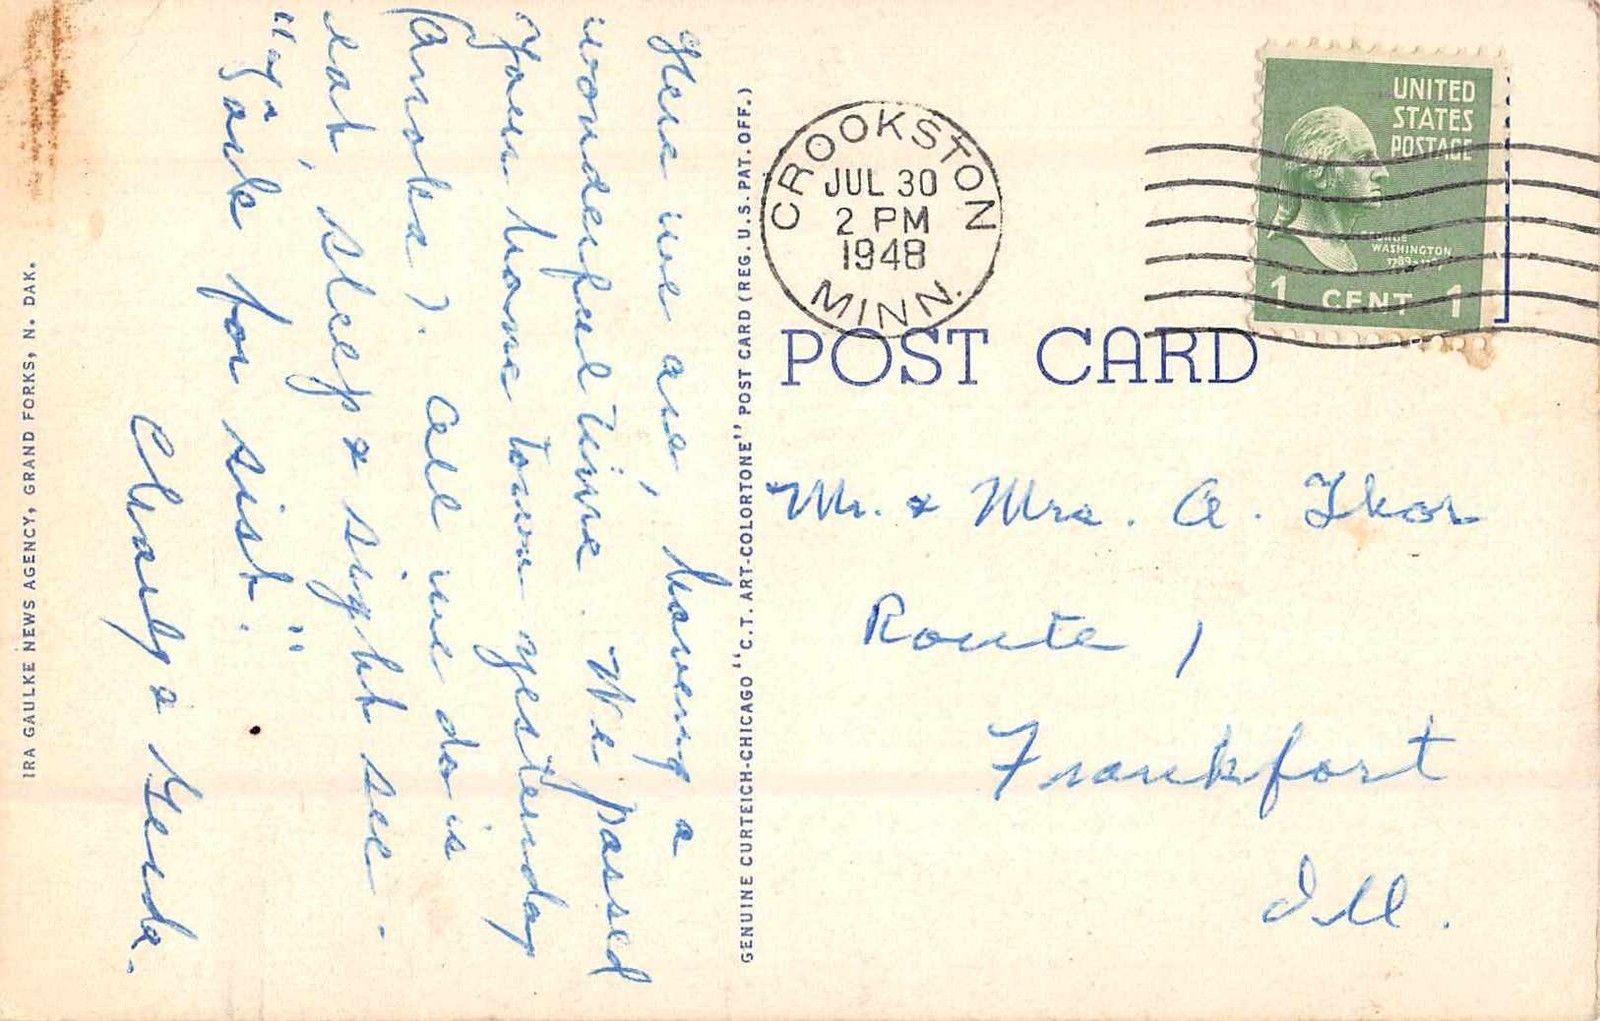 Here we are, having a
wonderful time. We passed
your home town yesterday
(Anoka). All we do is
eat, sleep & sight see.
"Tjack for sist."
Charly & Gerda.
IRA GAULKE NEWS AGENCY, GRAND FORKS, N. DAK.
GENUINE CURTEICH-CHICAGO "C.T. ART-COLORTONE" POST CARD (REG. U.S. PAT. OFF.)
CROOKSTON
JUL 30
2 PM
1948
MINN.
UNITED
STATES
POSTAGE
GEORGE
WASHINGTON
1 CENT 1
POST CARD
Mr. & Mrs. A.
Route 1
Frankfort
Ill.